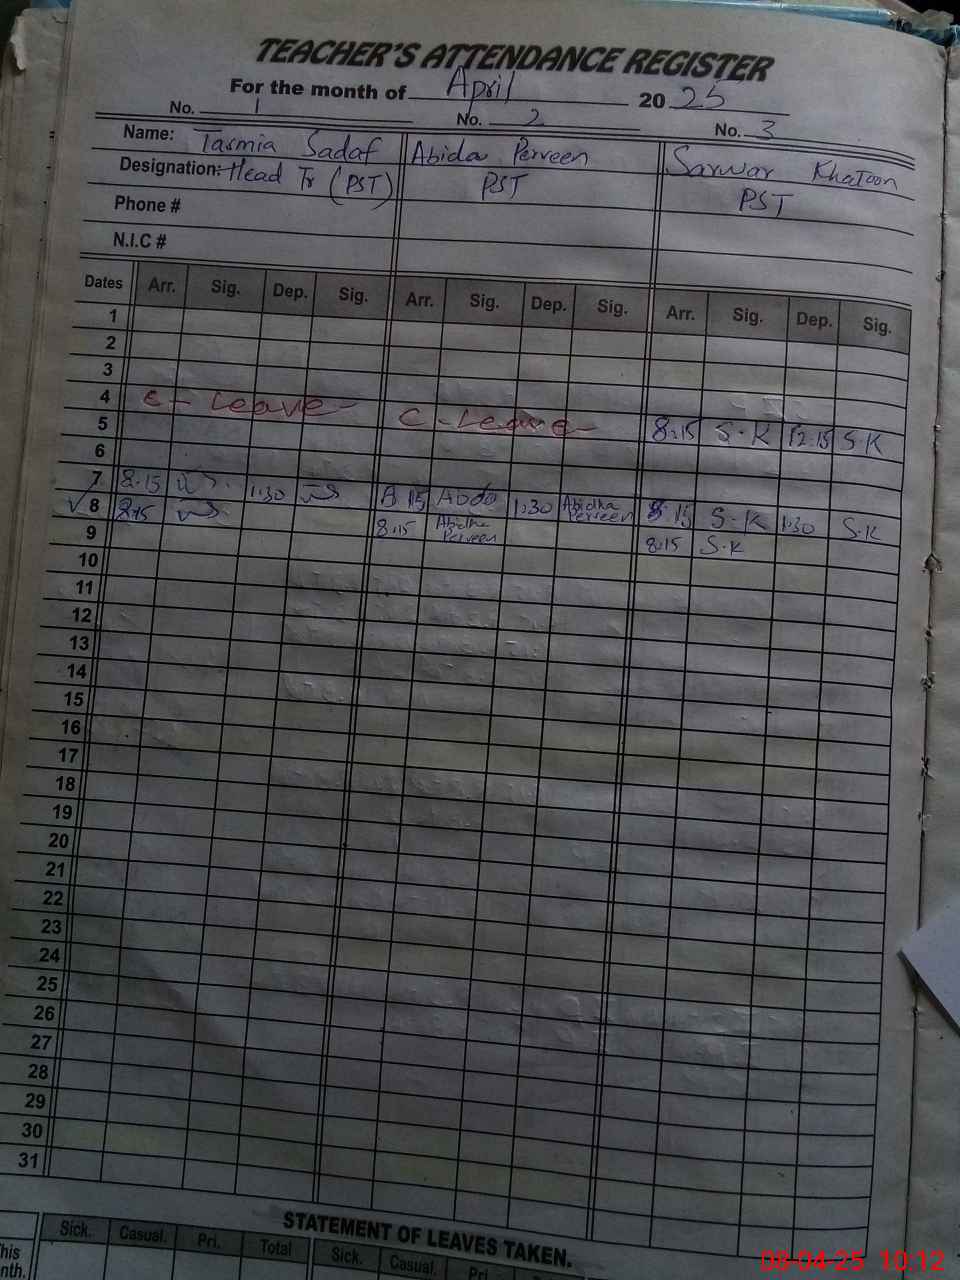 TEACHER'S ATTENDANCE REGISTER
For the month of April 20 25
No. 1 No. 2 No. 3
Name: Tasmia Sadaf Abida Perveen Sarwar Khatoon
Designation: Head Tr (PST) PST PST
Phone #
N.I.C #
Dates Arr. Sig. Dep. Sig. Arr. Sig. Dep. Sig. Arr. Sig. Dep. Sig.
1
2
3
4
5 C-Leave C-Leave 8:15 S.K 12:15 S.K
6
7 8:15 1:30 8:15 1:30 Abidha Perveen 8:15 S.K 1:30 S.K
✓8 8:15 8:15 Abidha Perveen 8:15 S.K
9
10
11
12
13
14
15
16
17
18
19
20
21
22
23
24
25
26
27
28
29
30
31
STATEMENT OF LEAVES TAKEN.
Sick. Casual. Pri. Total Sick. Casual. Pri.
This
nth.
08-04-25 10:12